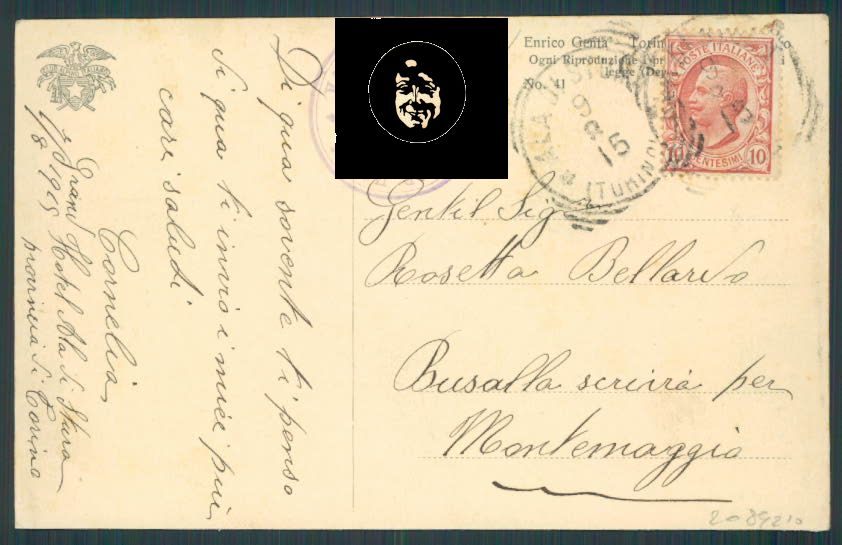 Di qua sovente ti penso
Si qua ti invio i miei più
cari saluti
Cornelia
Grand Hotel Ala di Stura
provincia di Torino
8 1915
Enrico Genta Torin
Ogni Riproduzione
legge
No. 41
POSTE ITALIANE
10 CENTESIMI 10
ALA DI
15
(TORINO
Gentil Sig
Rosetta Bellardo
Busalla scrivia per
Montemaggio